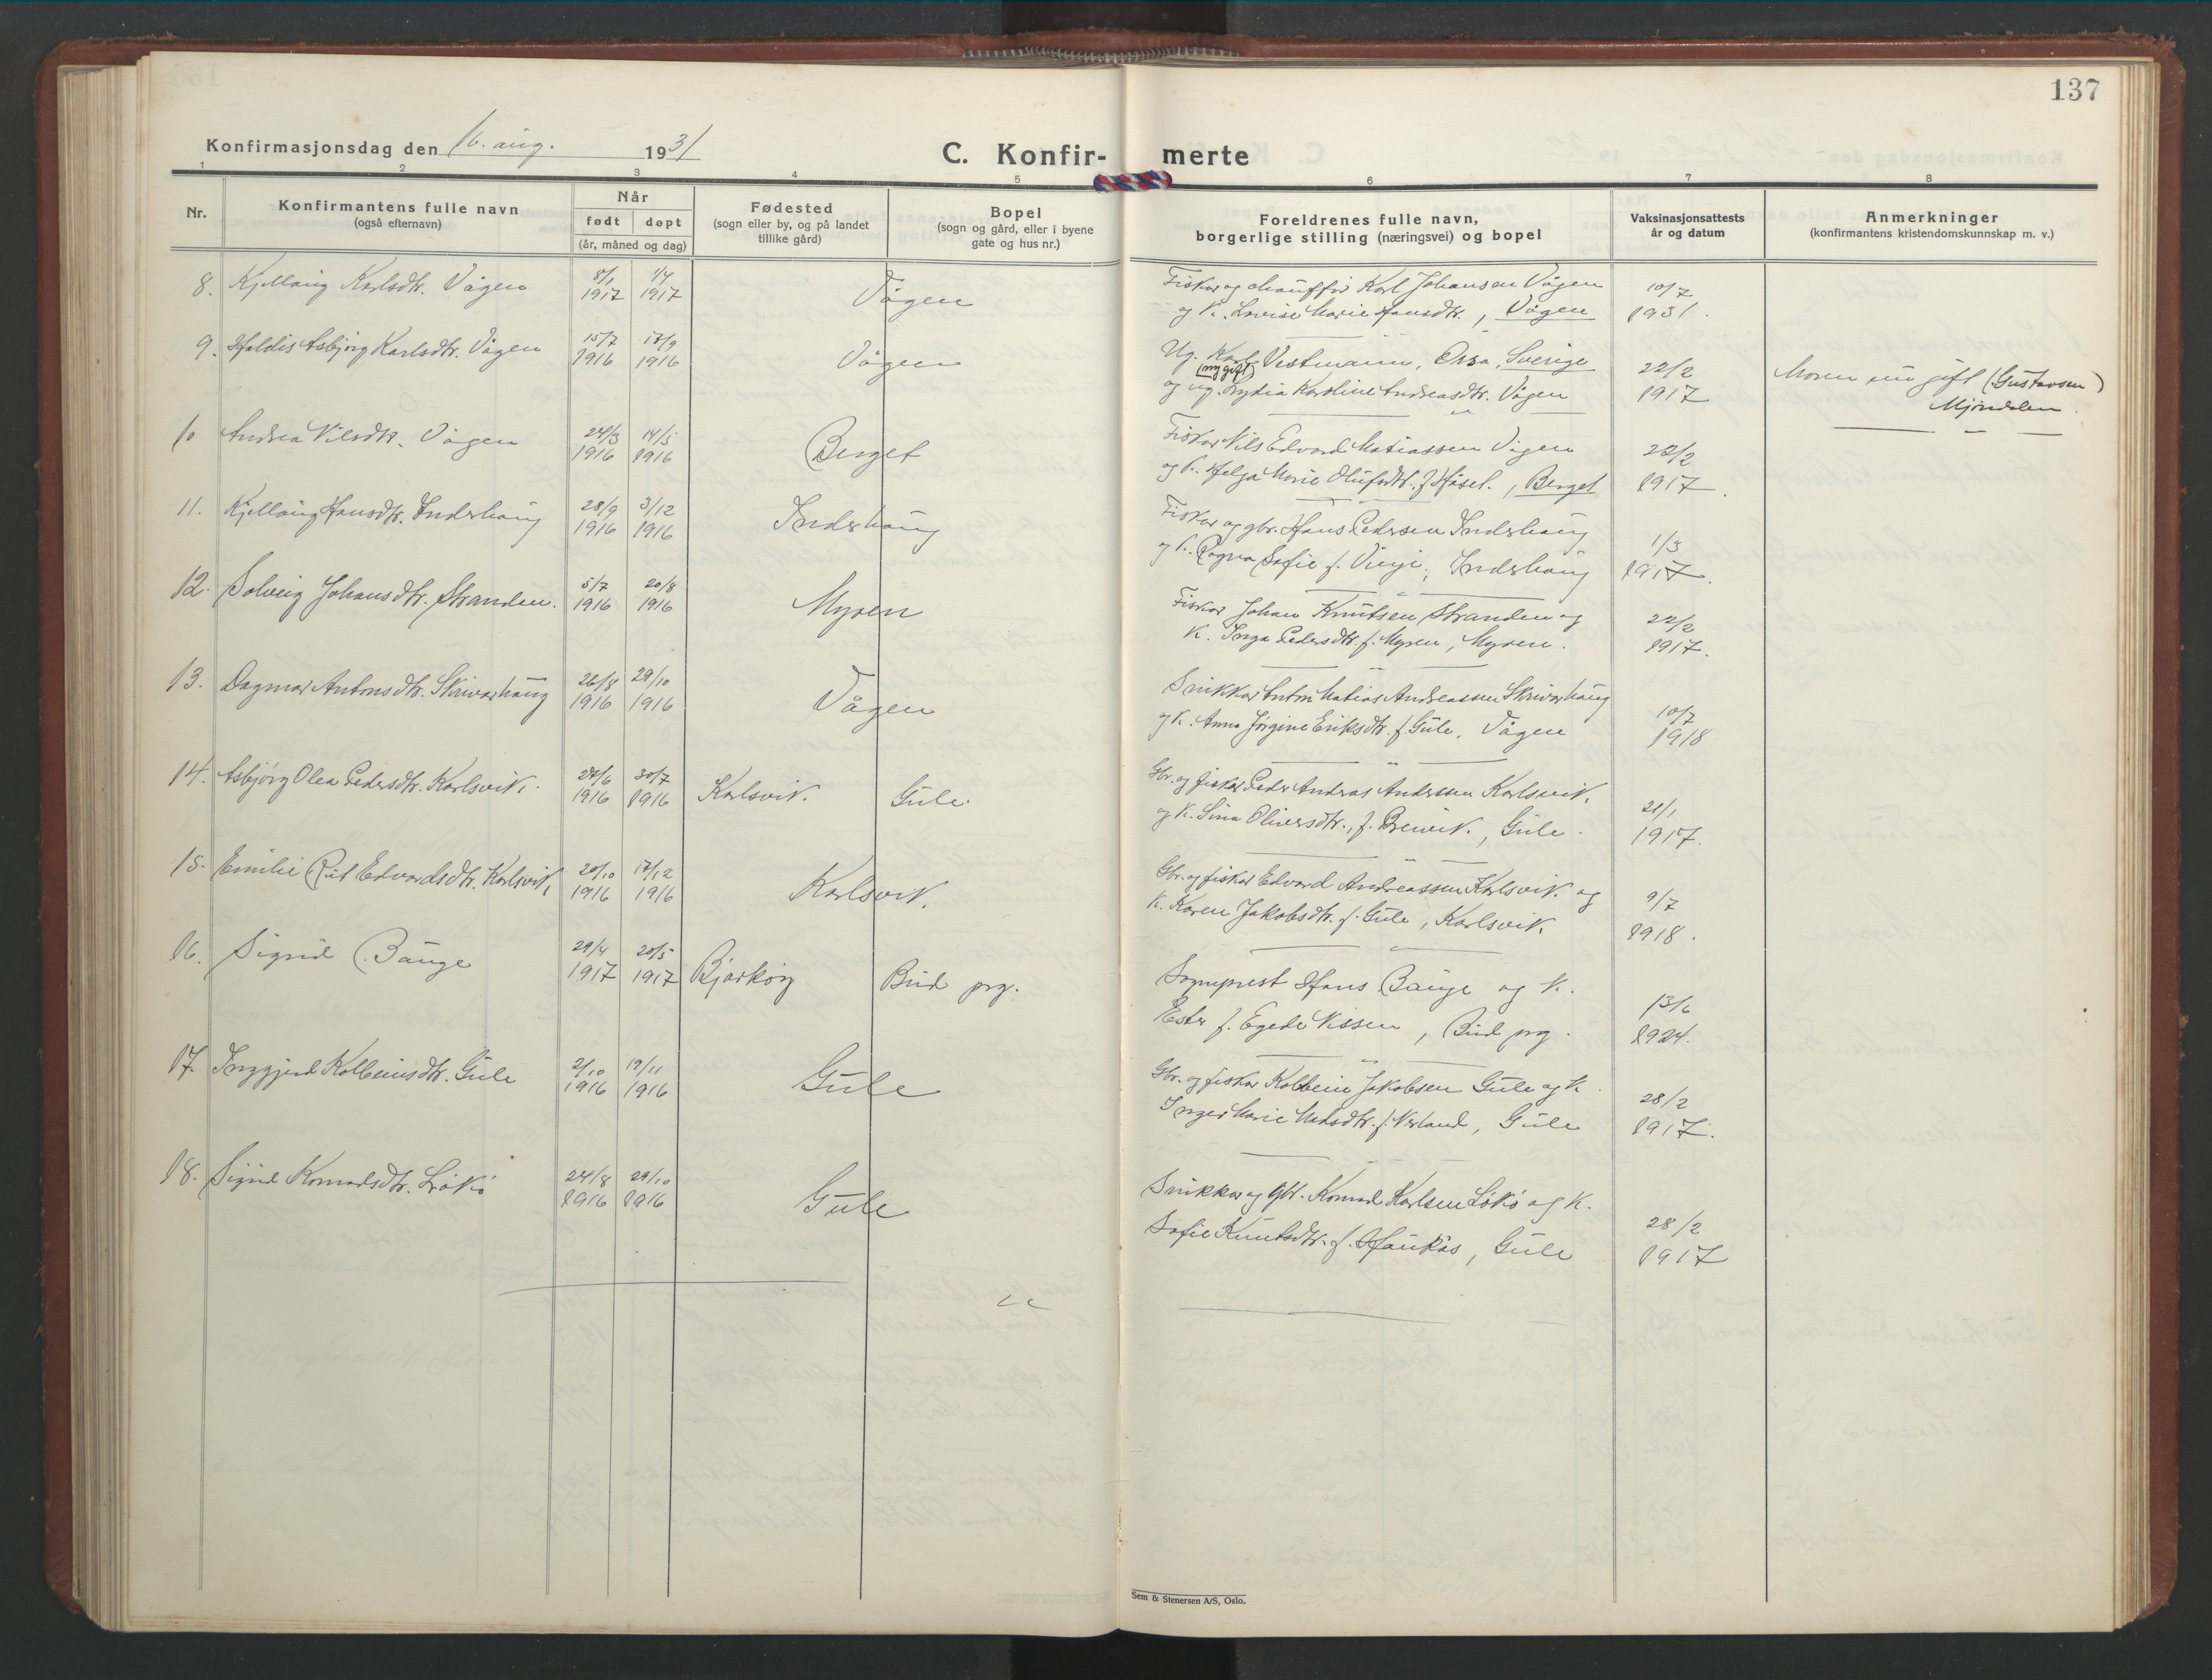 137
Konfirmasjonsdag den 16. aug. 1931
C. Konfir- merte
1 2 3 4 5 6 7 8
Nr.
Konfirmantens fulle navn
(også efternavn)
Når
født døpt
(år, måned og dag)
Fødested
(sogn eller by, og på landet
tillike gård)
Bopel
(sogn og gård, eller i byene
gate og hus nr.)
Foreldrenes fulle navn,
borgerlige stilling (næringsvei) og bopel
Vaksinasjonsattests
år og datum
Anmerkninger
(konfirmantens kristendomskunnskap m. v.)
8. Kjellaug Karlsdtr. Vågen 8/1 1917 1/4 1917 Vågen
Fisker og chauffør Karl Johansen Vågen
og k. Lovise Marie Hansdtr., Vågen
10/7 1931.
9. Haldis Asbjørg Karlsdtr. Vågen 15/7 1916 17/9 1916 Vågen
Ug. Karl Vestmann, Orsa, Sverige
(ny gift)
og ug. Lydia Karoline Andreasdtr. Vågen
22/2 1917
Moren nu gift (Gustavsen)
Mjøndalen.
10 Andrea Nilsdtr. Vågen 24/3 1916 14/5 1916 Berget
Fisker Nils Edvard Matiassen Vågen
og k. Helga Marie Olufsdtr. f. Håsel., Berget
22/2 1917.
11. Kjellaug Hansdtr. Inderhaug 28/9 1916 3/12 1916 Inderhaug
Fisker og gbr. Hans Pedersen Inderhaug
og k. Ragna Sofie f. Vinje, Inderhaug
1/3 1917.
12. Solveig Johansdtr. Stranden. 5/7 1916 20/8 1916 Myren
Fisker Johan Knutsen Stranden og
k. Inga Pedersdtr. f. Myren, Myren.
22/2 1917.
13. Dagmar Antonsdtr. Skrivarhaug 26/8 1916 29/10 1916 Vågen
Snikker Anton Matias Andreassen Skrivarhaug
og k. Anna Jørgine Eriksdtr. f. Gule. Vågen
10/7 1918
14. Asbjørg Olea Pedersdtr. Karlsvik. 27/6 1916 30/7 1916 Karlsvik. Gule.
Gbr. og fisker Peder Andreas Andersen Karlsvik.
og k. Sina Oliversdtr., f. Breivik., Gule.
21/1 1917.
15. Emilie Rut Edvardsdtr. Karlsvik. 20/10 1916 17/12 1916 Karlsvik.
Gbr. og fisker Edvard Andreassen Karlsvik. og
k. Karen Jakobsdtr. f. Gule, Karlsvik.
9/7 1918.
16. Sigrid Bauge 29/4 1917 20/5 1917 Bjarkøy Bud prg.
Sogneprest Hans Bauge og k.
Ester f. Egede Nissen, Bud prg.
13/6 1924.
17. Inggjerd Kolbeinsdtr. Gule 2/10 1916 19/11 1916 Gule
Gbr. og fisker Kolbein Jakobsen Gule og k.
Inger Marie Madsdtr. f. Nerland, Gule
28/2 1917.
18. Sigrid Konradsdtr. Løkø 24/8 1916 29/10 1916 Gule
Snikker og gbr. Konrad Karlsen Løkø og k.
Sofie Knutsdtr. f. Haukås, Gule
28/2 1917
Sem & Stenersen A/S, Oslo.